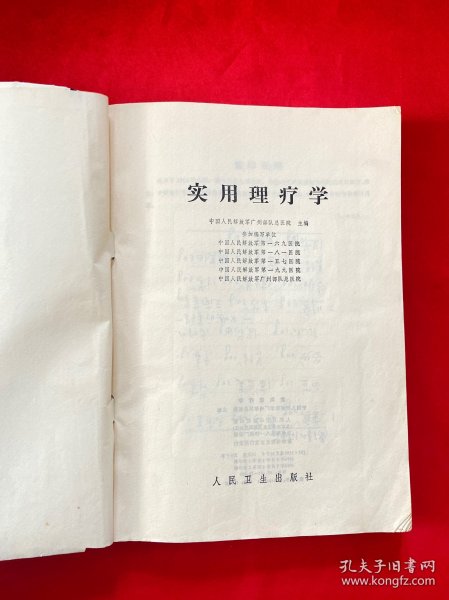 实用理疗学
中国人民解放军广州部队总医院 主编
参加编写单位
中国人民解放军第一六九医院
中国人民解放军第一八一医院
中国人民解放军第一五七医院
中国人民解放军第一九九医院
中国人民解放军广州部队总医院
人民卫生出版社
孔夫子旧书网
www.kongfz.com